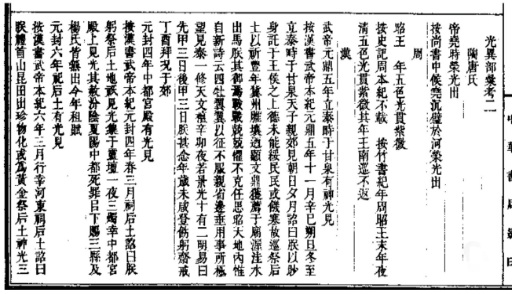 光異部彙考二
陶唐氏
帝堯時榮光出
按尚書中候堯沉璧於河榮光出
周
昭王 年五色光貫紫微
按史記周本紀不載 按竹書紀年周昭王末年夜
清五色光貫紫微其年王南巡不返
漢
武帝元鼎五年立泰畤于甘泉有神光見
按漢書武帝本紀元鼎五年十一月辛巳朔旦冬至
立泰畤于甘泉天子親郊見朝日夕月詔曰朕以眇
身託于王侯之上德未能綏民民或饑寒故巡祭后
土以祈豐年冀州脽壤迺顯文鼎獲薦于廟渥洼水
出馬朕其御焉戰戰兢兢懼不克任思昭天地內惟
自新詩云四牡翼翼以征不服親省邊垂用事所極
望見泰一修天文襢辛卯夜若景光十有二明易曰
先甲三日後甲三日朕甚念年歲未咸登飭躬齋戒
丁酉拜況于郊
元封四年中都宮殿有光見
按漢書武帝本紀元封四年春三月祠后土詔曰朕
躬祭后土地祇見光集于靈壇一夜三燭幸中都宮
殿上見光其赦汾陰夏陽中都死罪以下賜三縣及
楊氏皆無出今年租賦
元封六年祠后土有光見
按漢書武帝本紀六年三月行幸河東祠后土詔曰
朕禮首山昆田出珍物化或為黃金祭后土神光三